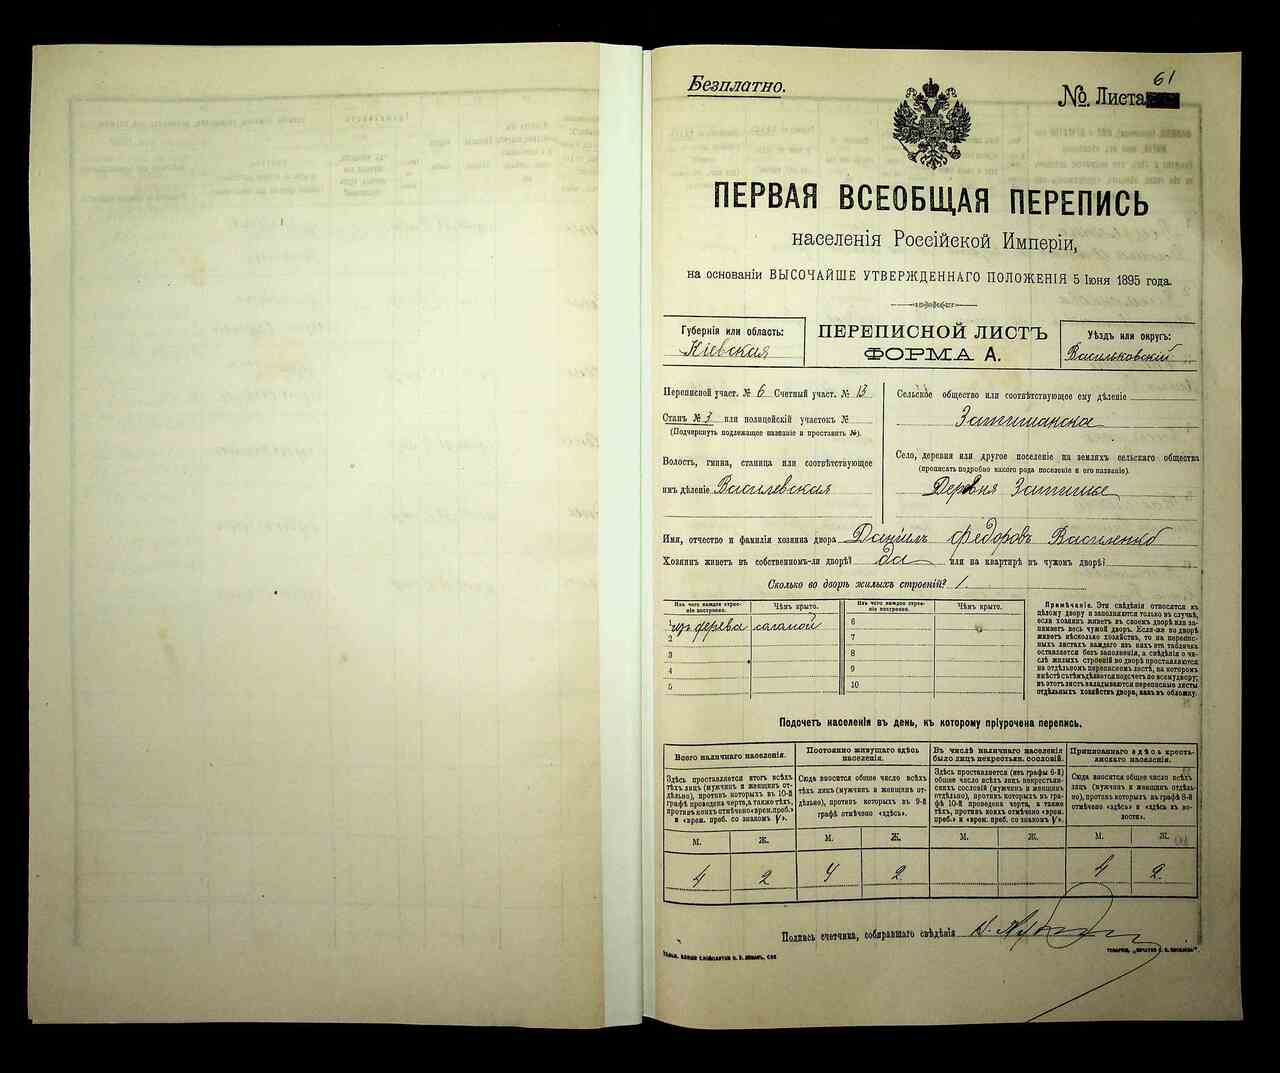 Безплатно.
61
№ Листа
ПЕРВАЯ ВСЕОБЩАЯ ПЕРЕПИСЬ
населенія Россійской Имперіи,
на основаніи ВЫСОЧАЙШЕ УТВЕРЖДЕННАГО ПОЛОЖЕНІЯ 5 Іюня 1895 года.
Губернія или область:
Кіевская
ПЕРЕПИСНОЙ ЛИСТЪ
ФОРМА А.
Уѣздъ или округъ:
Васильковскій
Переписной участ. № 6 Счетный участ. № 13
Станъ № 3 или полицейскій участокъ №
(Подчеркнуть подлежащее названіе и проставить №).
Волость, гмина, станица или соотвѣтствующее
имъ дѣленіе Василевская
Сельское общество или соотвѣтствующее ему дѣленіе
Затишанска
Село, деревня или другое поселеніе на земляхъ сельскаго общества
(прописать подробно какого рода поселеніе и его названіе).
Деревня Затишье
Имя, отчество и фамилія хозяина двора Даніилъ Федоровъ Василенко
Хозяинъ живетъ въ собственномъ-ли дворѣ? да или на квартирѣ въ чужомъ дворѣ?
Сколько во дворѣ жилыхъ строеній? 1.
Изъ чего каждое строеніе построено. Чѣмъ крыто. Изъ чего каждое строеніе построено. Чѣмъ крыто.
1 изъ дерева саломой 6
2 7
3 8
4 9
5 10
Примѣчаніе. Эти свѣдѣнія относятся къ
цѣлому двору и заполняются только въ случаѣ,
если хозяинъ живетъ въ своемъ дворѣ или занимаетъ
весь чужой дворъ. Если-же во дворѣ
живетъ нѣсколько хозяйствъ, то на переписныхъ
листахъ каждаго изъ нихъ эта табличка
оставляется безъ заполненія, а свѣдѣнія о числѣ
жилыхъ строеній во дворѣ проставляются
на отдѣльномъ переписномъ листѣ, на которомъ
вмѣстѣ съ тѣмъ дѣлается подсчетъ по всему двору;
въ этотъ листъ вкладываются переписные листы
отдѣльныхъ хозяйствъ двора, какъ въ обложку.
Подсчетъ населенія въ день, къ которому пріурочена перепись.
Всего наличнаго населенія.
Здѣсь проставляется итогъ всѣхъ
тѣхъ лицъ (мужчинъ и женщинъ отдѣльно),
противъ которыхъ въ 10-й
графѣ проведена черта, а также тѣхъ,
противъ коихъ отмѣчено «врем. преб.»
и «врем. преб. со знакомъ V».
Постоянно живущаго здѣсь
населенія.
Сюда вносится общее число всѣхъ
тѣхъ лицъ (мужчинъ и женщинъ отдѣльно),
противъ которыхъ въ 9-й
графѣ отмѣчено «здѣсь».
Въ числѣ наличнаго населенія
было лицъ некрестьян. сословій.
Здѣсь проставляется (изъ графы 6-й)
общее число всѣхъ лицъ некрестьянскихъ
сословій (мужчинъ и женщинъ
отдѣльно), противъ которыхъ въ графѣ
10-й проведена черта, а также
тѣхъ, противъ коихъ отмѣчено «врем.
преб.» и «врем. преб. со знакомъ V».
Приписаннаго здѣсь крестьянскаго
населенія.
Сюда вносится общее число всѣхъ
лицъ (мужчинъ и женщинъ отдѣльно),
противъ которыхъ въ графѣ 8-й
отмѣчено «здѣсь» и «здѣсь къ волости».
М. Ж. М. Ж. М. Ж. М. Ж.
4 2 4 2 4 2
Подпись счетчика, собиравшаго свѣдѣнія